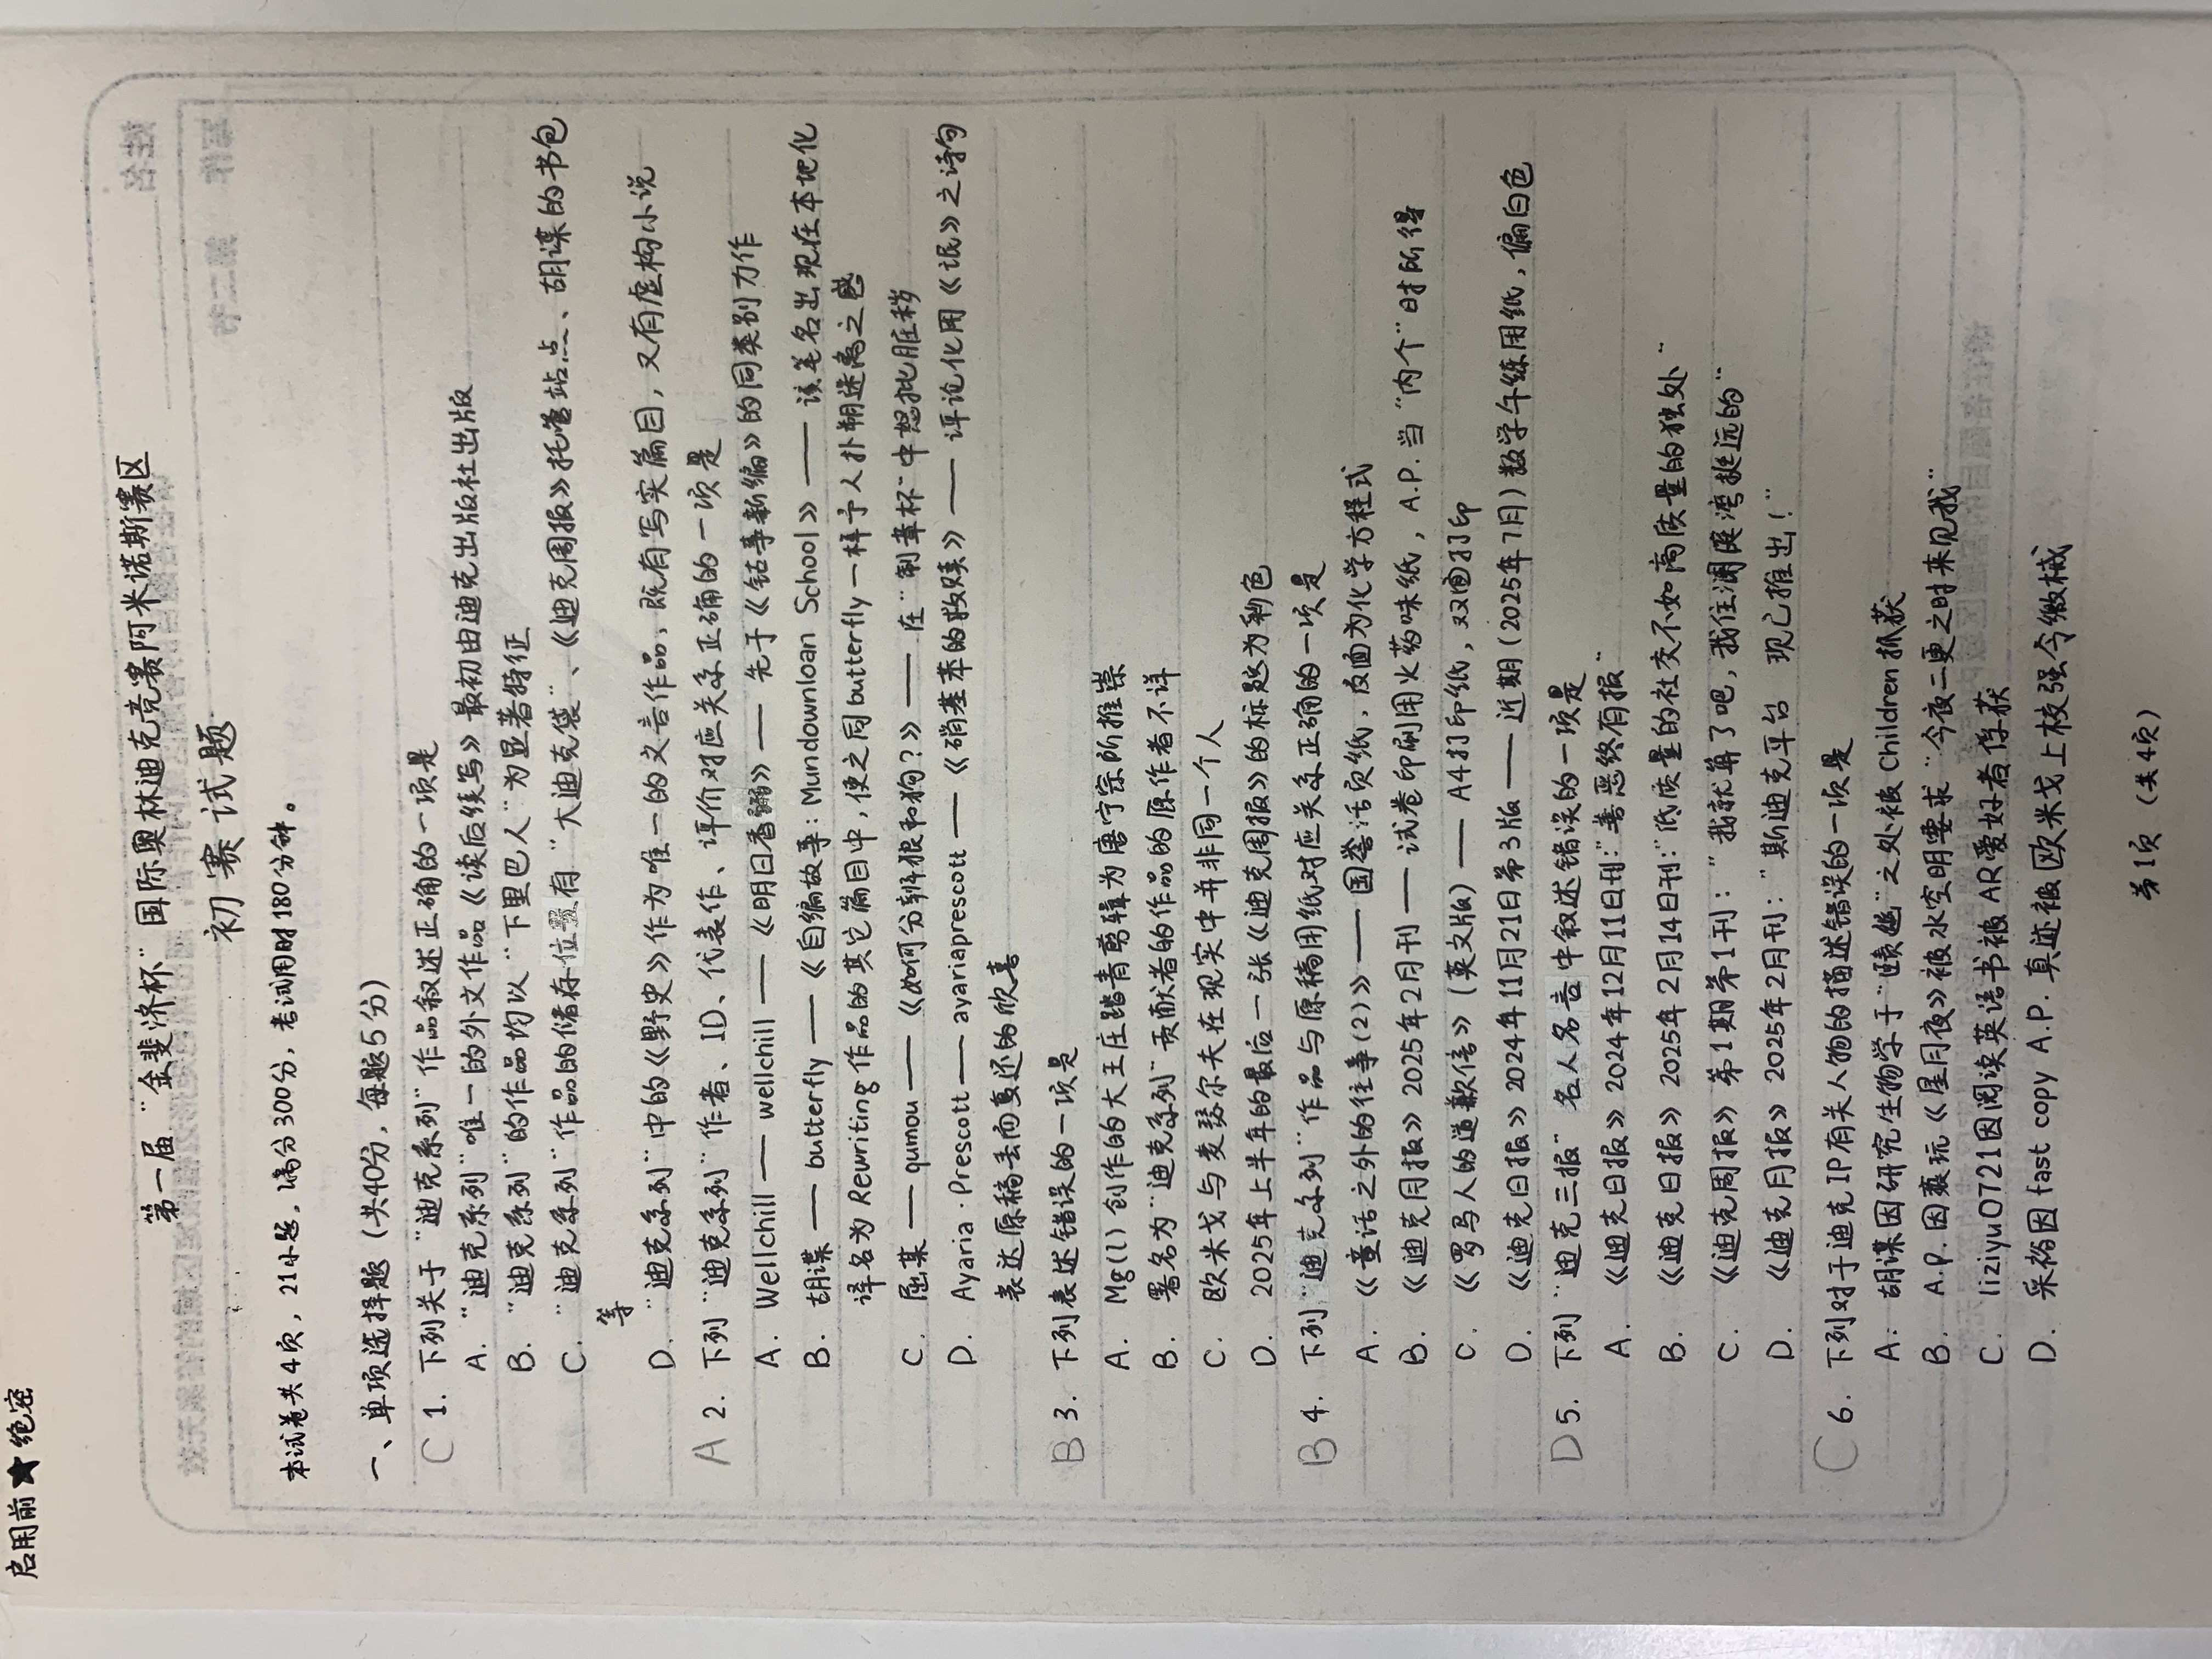 启用前★绝密
第一届“金斐济杯”国际奥林迪克竞赛阿米诺斯赛区
初赛试题
本试卷共4页，21小题。满分300分，考试用时180分钟。
一、单项选择题（共40分，每题5分）
C 1. 下列关于“迪克系列”作品叙述正确的一项是
A. “迪克系列”唯一的外文作品《读后续写》最初由迪克出版社出版
B. “迪克系列”的作品均以“下里巴人”为显著特征
C. “迪克系列”作品的储存位置有“大迪克袋”、《迪克周报》托管站点、胡谋的书包
等
D. “迪克系列”中的《野史》作为唯一的文言作品，既有写实篇目，又有虚构小说
A 2. 下列“迪克系列”作者、ID、代表作、评价对应关系正确的一项是
A. Wellchill — wellchill — 《明日香粥》— 先于《钴事新编》的同类别力作
B. 胡谋 — butterfly — 《自编故事：Mundownloan School》 — 该笔名出现在本地化
译名为 Rewriting 作品的其它篇目中，使之同butterfly一样予人扑朔迷离之感
C. 屈某 — qumou — 《如何分辨狼和狗？》 — 在“制章杯”中怒批脏秽
D. Ayaria·Prescott — ayariaprescott — 《硝基苯的救赎》 — 评论化用《氓》之诗句
表达原稿丢而复还的欣喜
B 3. 下列表述错误的一项是
A. Mg(l) 创作的大王庄踏青剪辑为唐宁宗所推崇
B. 署名为“迪克系列”贡献者的作品的原作者不详
C. 欧米戈与麦瑟尔夫在现实中并非同一个人
D. 2025年上半年的最后一张《迪克周报》的标题为彩色
B 4. 下列“迪克系列”作品与原稿用纸对应关系正确的一项是
A. 《童话之外的往事(2)》 — 国誉活页纸，反面为化学方程式
B. 《迪克月报》2025年2月刊 — 试卷印刷用火药味纸，A.P.当“内个”时所得
C. 《罗马人的道歉信》（英文版）— A4打印纸，双面打印
D. 《迪克日报》2024年11月21日第3版 — 近期（2025年7月）数学午练用纸，偏白色
D 5. 下列“迪克三报”名人名言中叙述错误的一项是
A. 《迪克日报》2024年12月11日刊：“善恶终有报”
B. 《迪克日报》2025年2月14日刊：“低质量的社交不如高质量的独处”
C. 《迪克周报》第1期第1刊：“我就算了吧，我住澜庭湾挺远的”
D. 《迪克月报》2025年2月刊：“斯迪克平台 现已推出！”
C 6. 下列对于迪克IP有关人物的描述错误的一项是
A. 胡谋因研究生物学于“赜繎”之处被 Children 抓获
B. A.P. 因亵玩《星月夜》被水空明要求“今夜二更之时来见我”
C. liziyu0721因阅读英语书被 AR爱好者俘获
D. 采裕因 fast copy A.P. 真迹被欧米戈上校强令缴械
第1页（共4页）